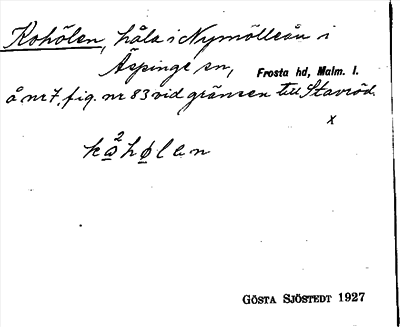 Kohölen, håla i Nymölleån i
Äspinge sn, Frosta hd, Malm. l.
å nr 7, fig. nr 83 vid gränsen till Stavröd.
x
ko²hølen
GÖSTA SJÖSTEDT 1927